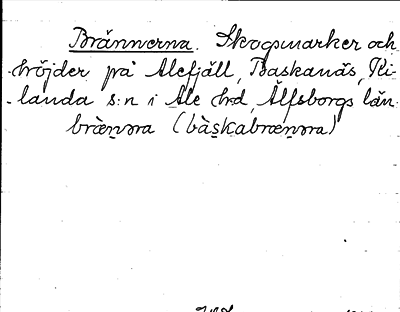 Brännerna. Skogsmarker och
höjder på Alefjäll, Båskanäs, Ki-
landa s:n i Ale hrd, Älfsborgs län
bræn̥ɔra (bàskabræn̥ɔra)